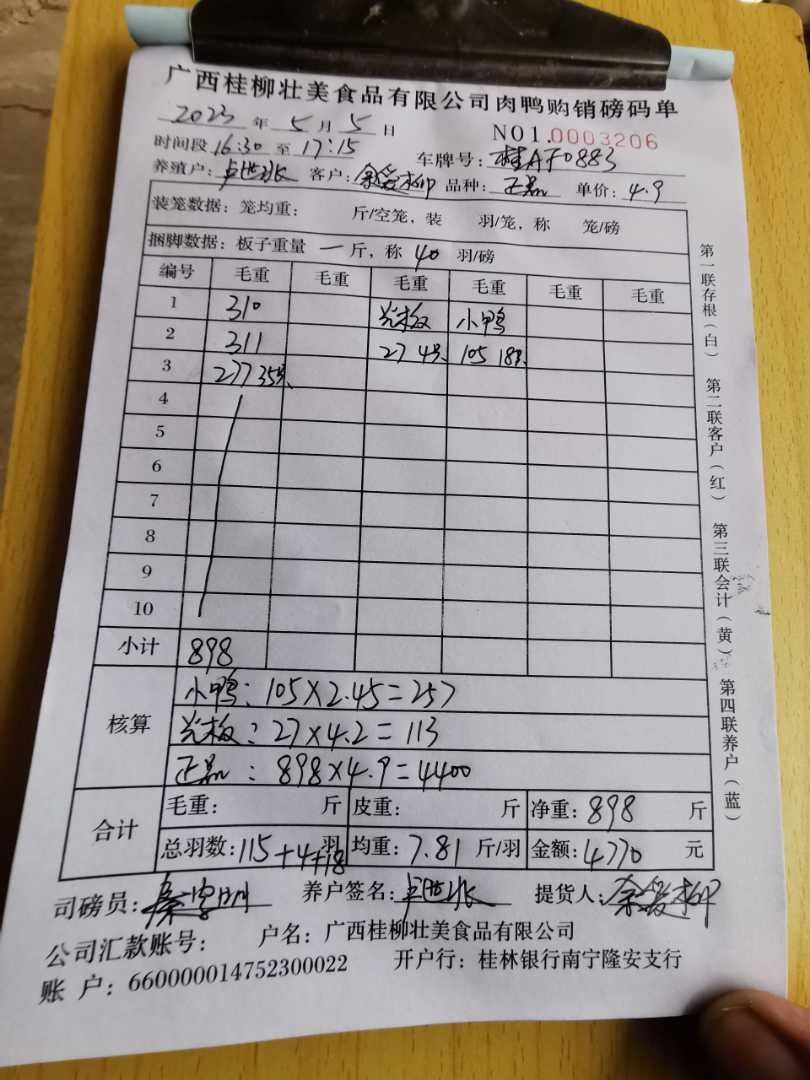 广西桂柳壮美食品有限公司肉鸭购销磅码单
2023 年 5 月 5 日 NO1.0003206
时间段 16:30 至 17:15 车牌号: 桂AF0883
养殖户: 客户: 品种: 正品 单价: 4.9
装笼数据: 笼均重: 斤/空笼, 装 羽/笼, 称 笼/磅
捆脚数据: 板子重量 一 斤, 称 40 羽/磅
编号 毛重 毛重 毛重 毛重 毛重 毛重
1 310 光板 小鸭
2 311 27 4只 105 18只
3 277 35只
4
5
6
7
8
9
10
小计 898
核算
小鸭: 105×2.45=257
光板: 27×4.2=113
正品: 898×4.9=4400
合计
毛重: 斤 皮重: 斤 净重: 898 斤
总羽数: 115+4+18 羽 均重: 7.81 斤/羽 金额: 4770 元
司磅员: 养户签名: 提货人:
公司汇款账号: 户名: 广西桂柳壮美食品有限公司
账 户: 660000014752300022 开户行: 桂林银行南宁隆安支行
第一联存根(白) 第二联客户(红) 第三联会计(黄) 第四联养户(蓝)